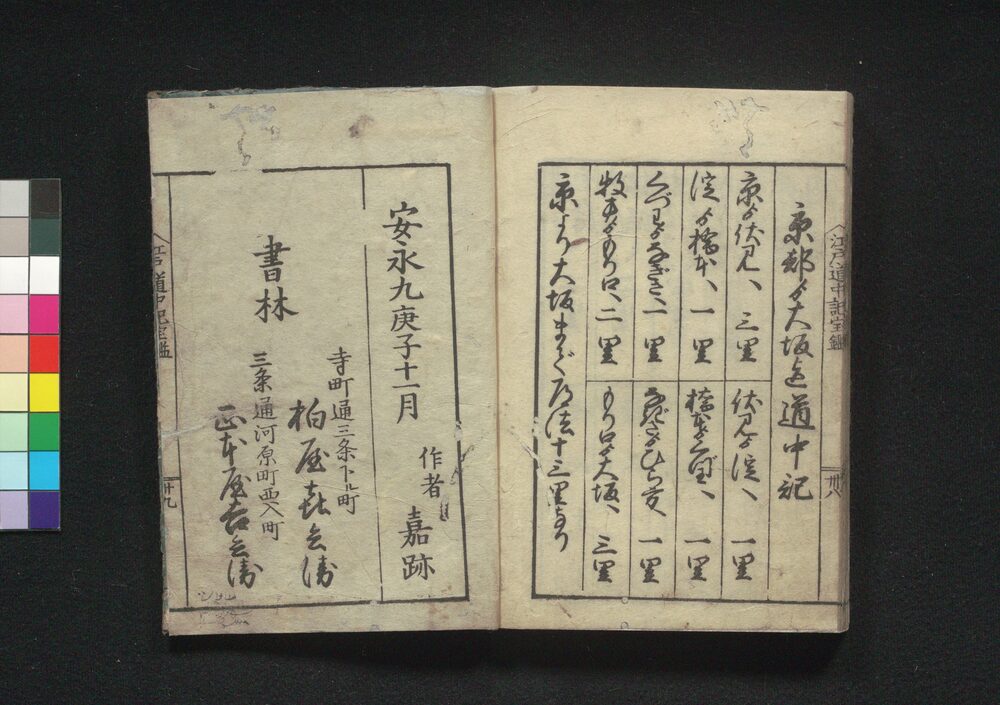 江戸道中記宝鑑
卅八
京都ゟ大坂迄道中記
京ゟ伏見へ 三里
伏見ゟ淀へ 一里
淀ゟ橋本へ 一里
橋本ゟくずはへ 一里
くづはゟなぎさへ 一里
なぎさゟひら方 一里
牧方ゟもり口へ 二里
もり口ゟ大坂へ 三里
京より大坂まで道法十三里なり
安永九庚子十一月
作者 嘉跡
書林
寺町通三条下ル町
柏屋喜兵衛
三条通河原町西入町
正本屋吉兵衛
江戸道中記宝鑑
卅九